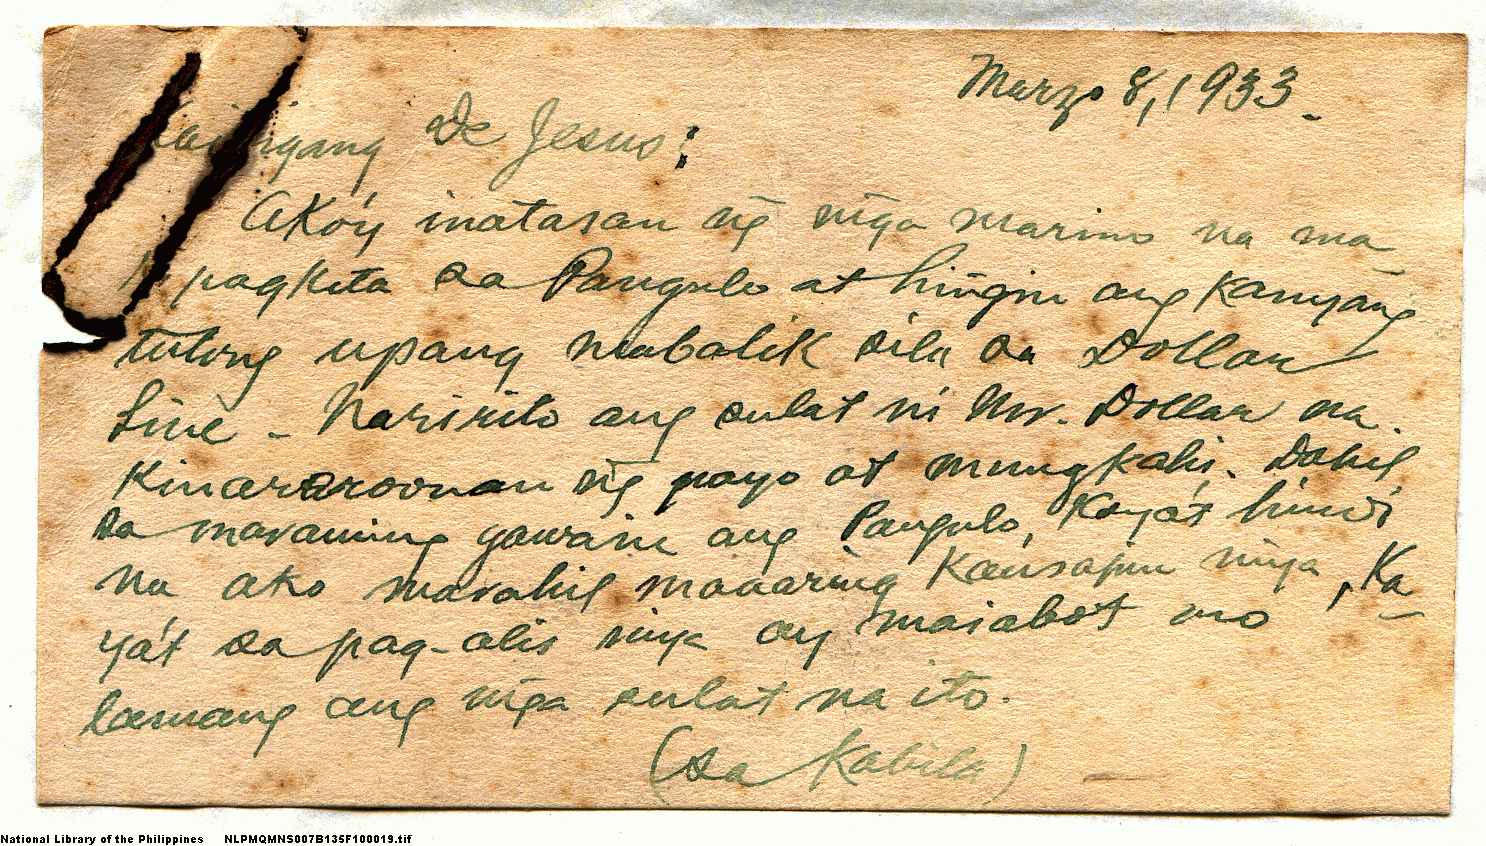 Marzo 8, 1933.
Kaibigang De Jesus:
Ako'y inatasan ng̃ mg̃a marino na ma
pagkita sa Pangulo at hing̃in ang kanyang
tulong upang mabalik sila sa Dollar
Line - Naririto ang sulat ni Mr. Dollar na
kinararoonan ng̃ payo at mungkahi. Dahil
sa maraming gawain ang Pangulo, kaya't hindi
na ako marahil maaaring kausapin niya, ka-
ya't sa pag-alis niya ay maiabot mo
lamang ang mg̃a sulat na ito.
(sa kabila)
National Library of the Philippines NLPMQMNS007B135F100019.tif